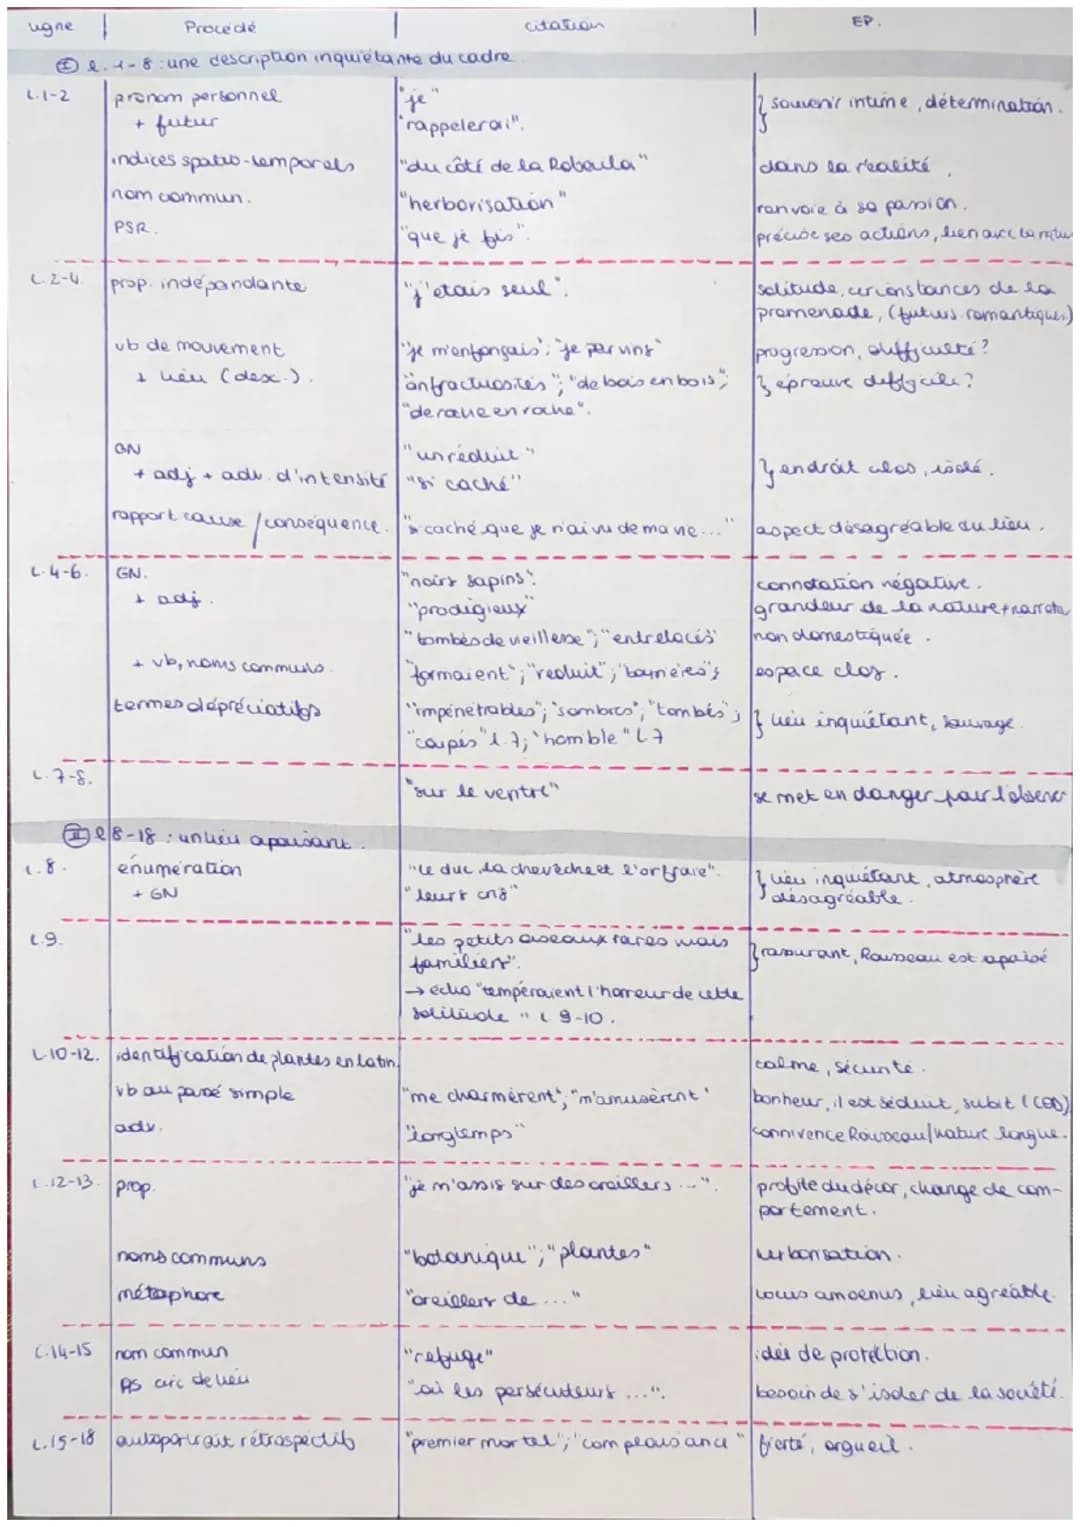 ligne Procédé citation EP.
I l. 1-8 : une description inquiétante du cadre
L.1-2 pronom personnel "je" } souvenir intime, détermination.
+ futur "rappelerai".
indices spatio-temporels "du côté de la Robaila" dans la réalité.
nom commun. "herborisation" renvoie à sa passion.
PSR. "que je fis". précise ses actions, lien avec la natu
L.2-4. prop. indépendante "j'étais seul". solitude, circonstances de la
promenade, (futurs romantiques)
vb de mouvement "je m'enfonçais"; "je parvins" progression, difficulté?
+ lieu (desc.). "anfractuosités"; "de bois en bois"; } épreuve difficile?
"de roche en roche".
GN "un réduit" } endroit clos, isolé.
+ adj + adv. d'intensité "si caché"
rapport cause/conséquence. "si caché que je n'ai vu de ma vie..." aspect désagréable du lieu.
L.4-6. GN. "noirs sapins". connotation négative.
+ adj. "prodigieux" grandeur de la nature + narrate
"tombés de vieillesse"; "entrelacés" non domestiquée.
+ vb, noms communs. "formaient"; "réduit"; "barrières"; espace clos.
termes dépréciatifs "impénétrables"; "sombres"; "tombés"; } lieu inquiétant, sauvage.
"coupés" l.7; "horrible" L.7
L.7-8. "sur le ventre" se met en danger pour l'observer
II l 8-18 : un lieu apaisant.
L.8. énumération "le duc, la chevêche et l'orfraie". } lieu inquiétant, atmosphère
+ GN "leurs cris" désagréable.
L.9. "les petits oiseaux rares mais
familiers". } rassurant, Rousseau est apaisé
→ écho "tempéraient l'horreur de cette
solitude" L 9-10.
L.10-12. identification de plantes en latin. calme, sécurité.
vb au passé simple "me charmèrent"; "m'amusèrent" bonheur, il est séduit, subit (COD)
adv. "longtemps" connivence Rousseau/nature longue.
L.12-13. prop. "je m'assis sur des oreillers...". profite du décor, change de com-
portement.
noms communs "botanique"; "plantes" herborisation.
métaphore "oreillers de ..." locus amoenus, lieu agréable.
L.14-15 nom commun "refuge" idée de protection.
PS circ de lieu "où les persécuteurs ...". besoin de s'isoler de la société.
L.15-18 autoportrait rétrospectif "premier mortel"; "complaisance" fierté, orgueil.